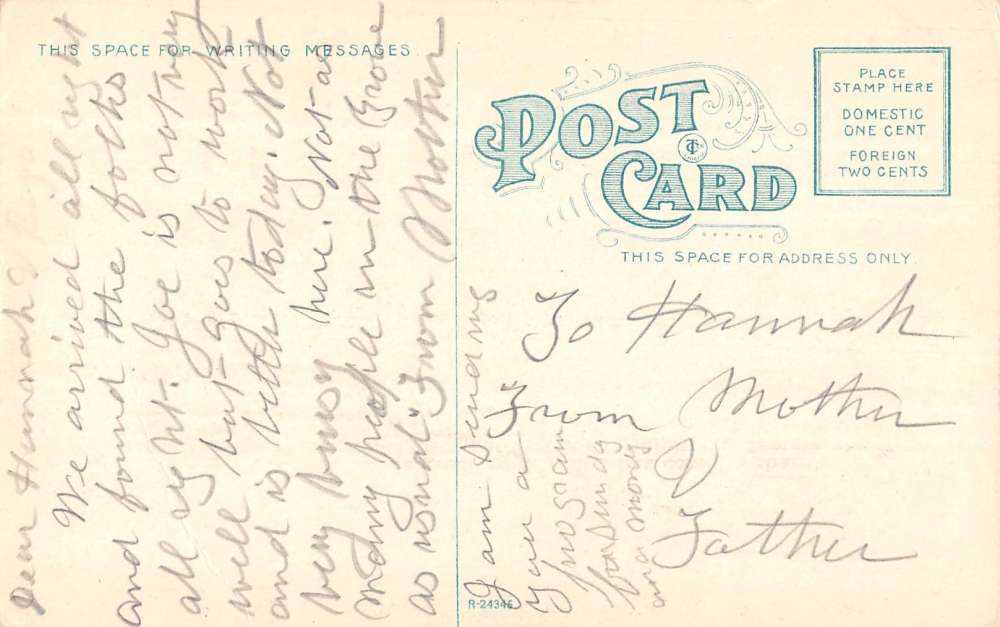 THIS SPACE FOR WRITING MESSAGES
Dear Hannah
We arrived all right
and found the folks
all right. Joe is not very
well but goes to work
and is better today. Not
very busy here. Not as
many people in the Grove
as usual. From Mother
POST
CARD
PLACE
STAMP HERE
DOMESTIC
ONE CENT
FOREIGN
TWO CENTS
THIS SPACE FOR ADDRESS ONLY.
To Hannah
From Mother
&
Father
I am sending
you a
program
for Sunday
and monday
R-24346